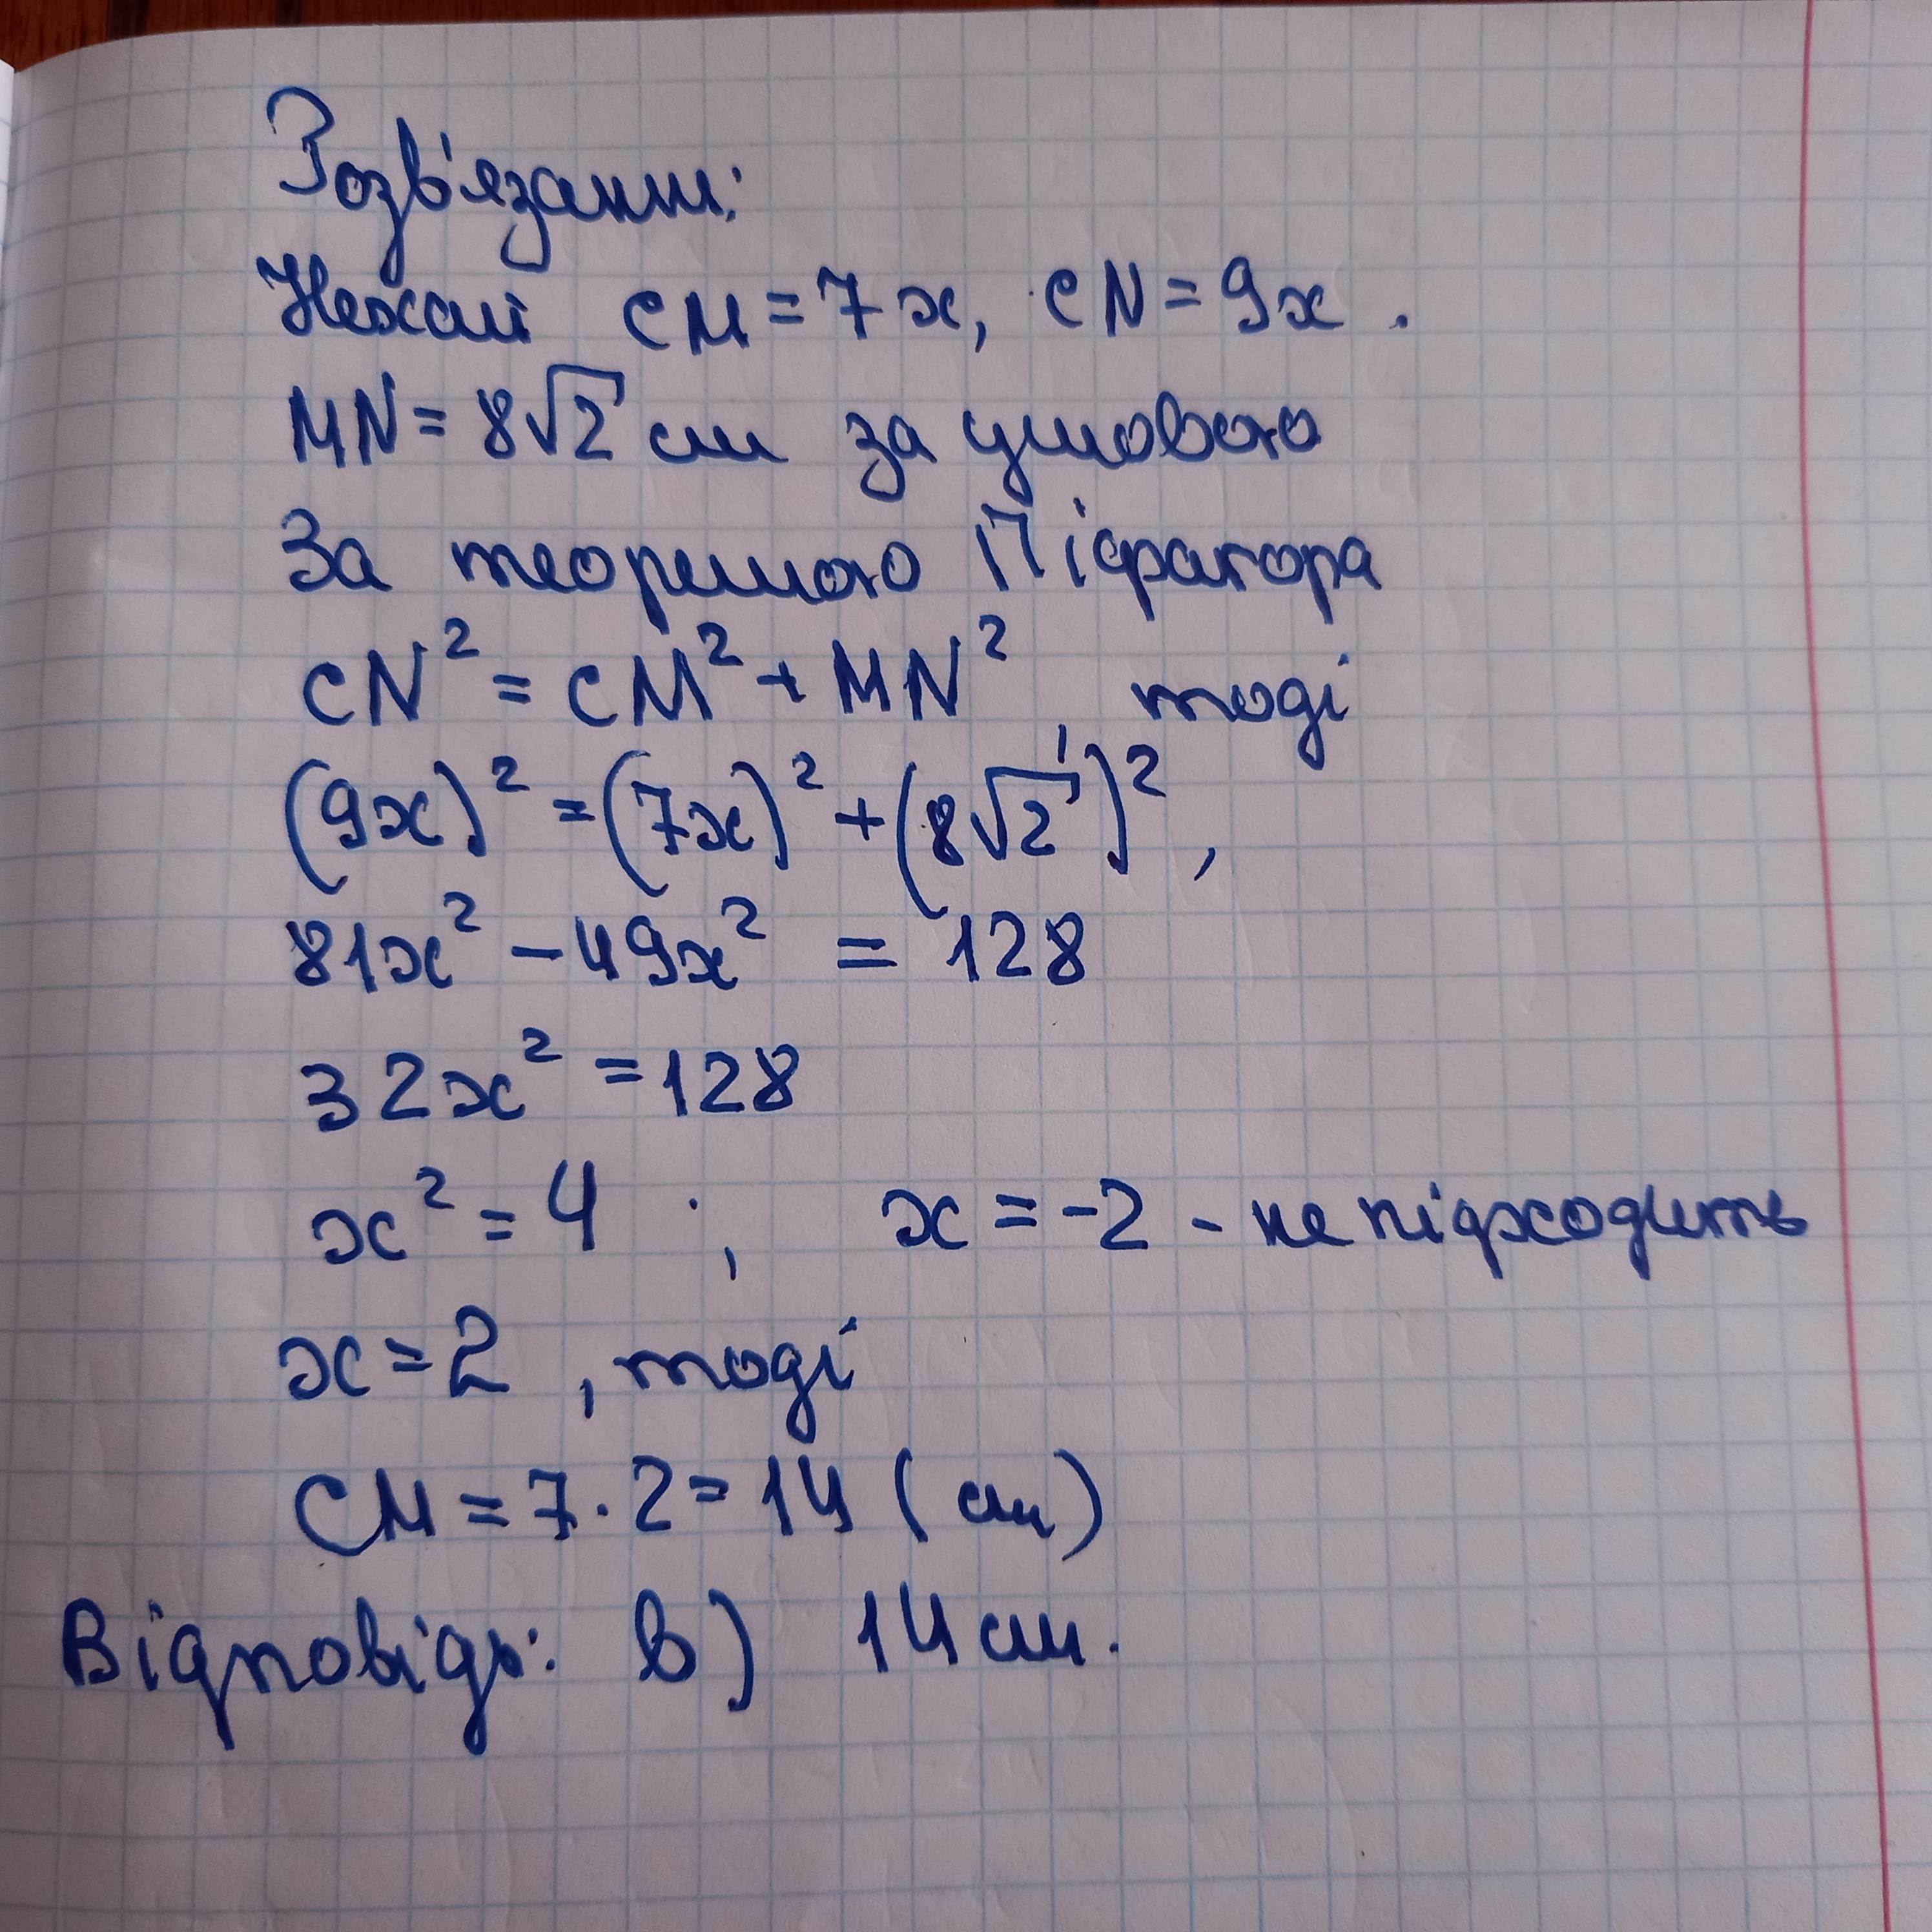 Розв'язання:
Нехай CM = 7x, CN = 9x.
MN = 8√2 см за умовою
За теоремою Піфагора
CN² = CM² + MN², тоді
(9x)² = (7x)² + (8√2)²,
81x² - 49x² = 128
32x² = 128
x² = 4 ; x = -2 - не підходить
x = 2, тоді
CM = 7·2 = 14 (см)
Відповідь: в) 14 см.